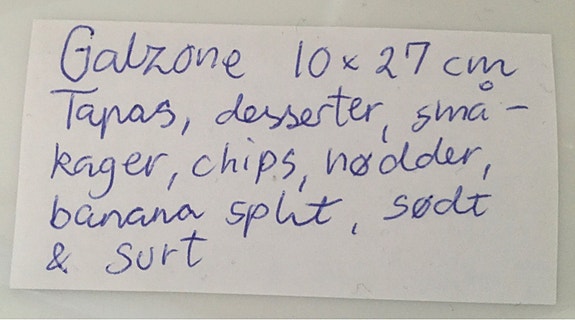 Galzone 10 x 27 cm
Tapas, desserter, små-
kager, chips, nødder,
banana split, sødt
& surt